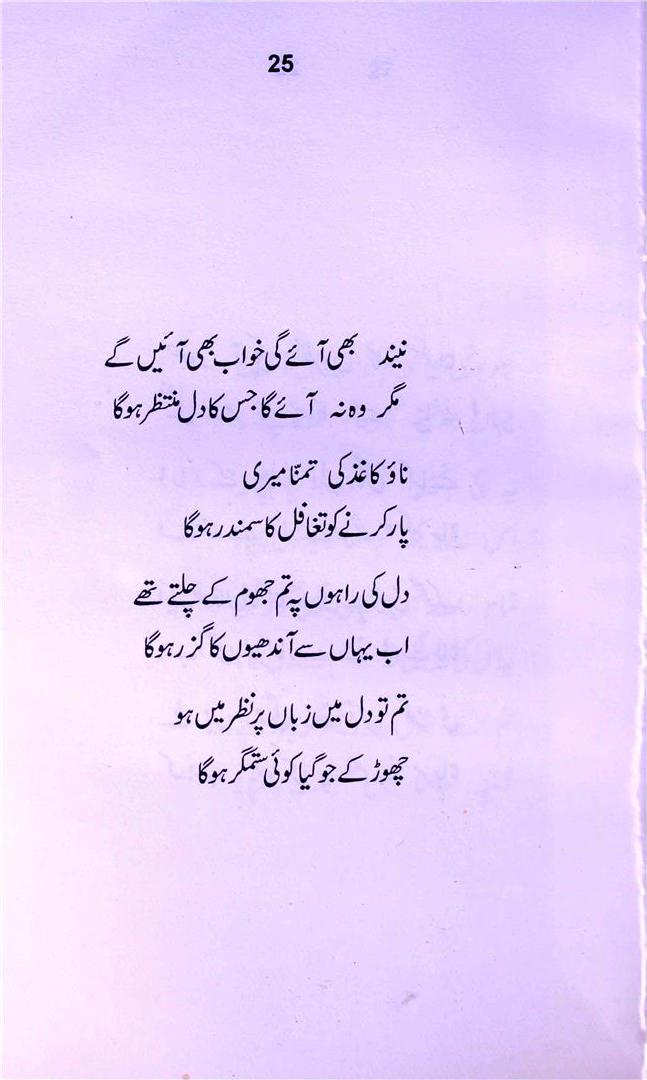 25
نیند بھی آئے گی خواب بھی آئیں گے
مگر وہ نہ آئے گا جس کا دل منتظر ہوگا
ناؤ کاغذ کی تمنّا میری
پار کرنے کو تغافل کا سمندر ہوگا
دل کی راہوں پہ تم جھوم کے چلتے تھے
اب یہاں سے آندھیوں کا گزر ہوگا
تم تو دل میں زباں پر نظر میں ہو
چھوڑ کے جو گیا کوئی ستمگر ہوگا